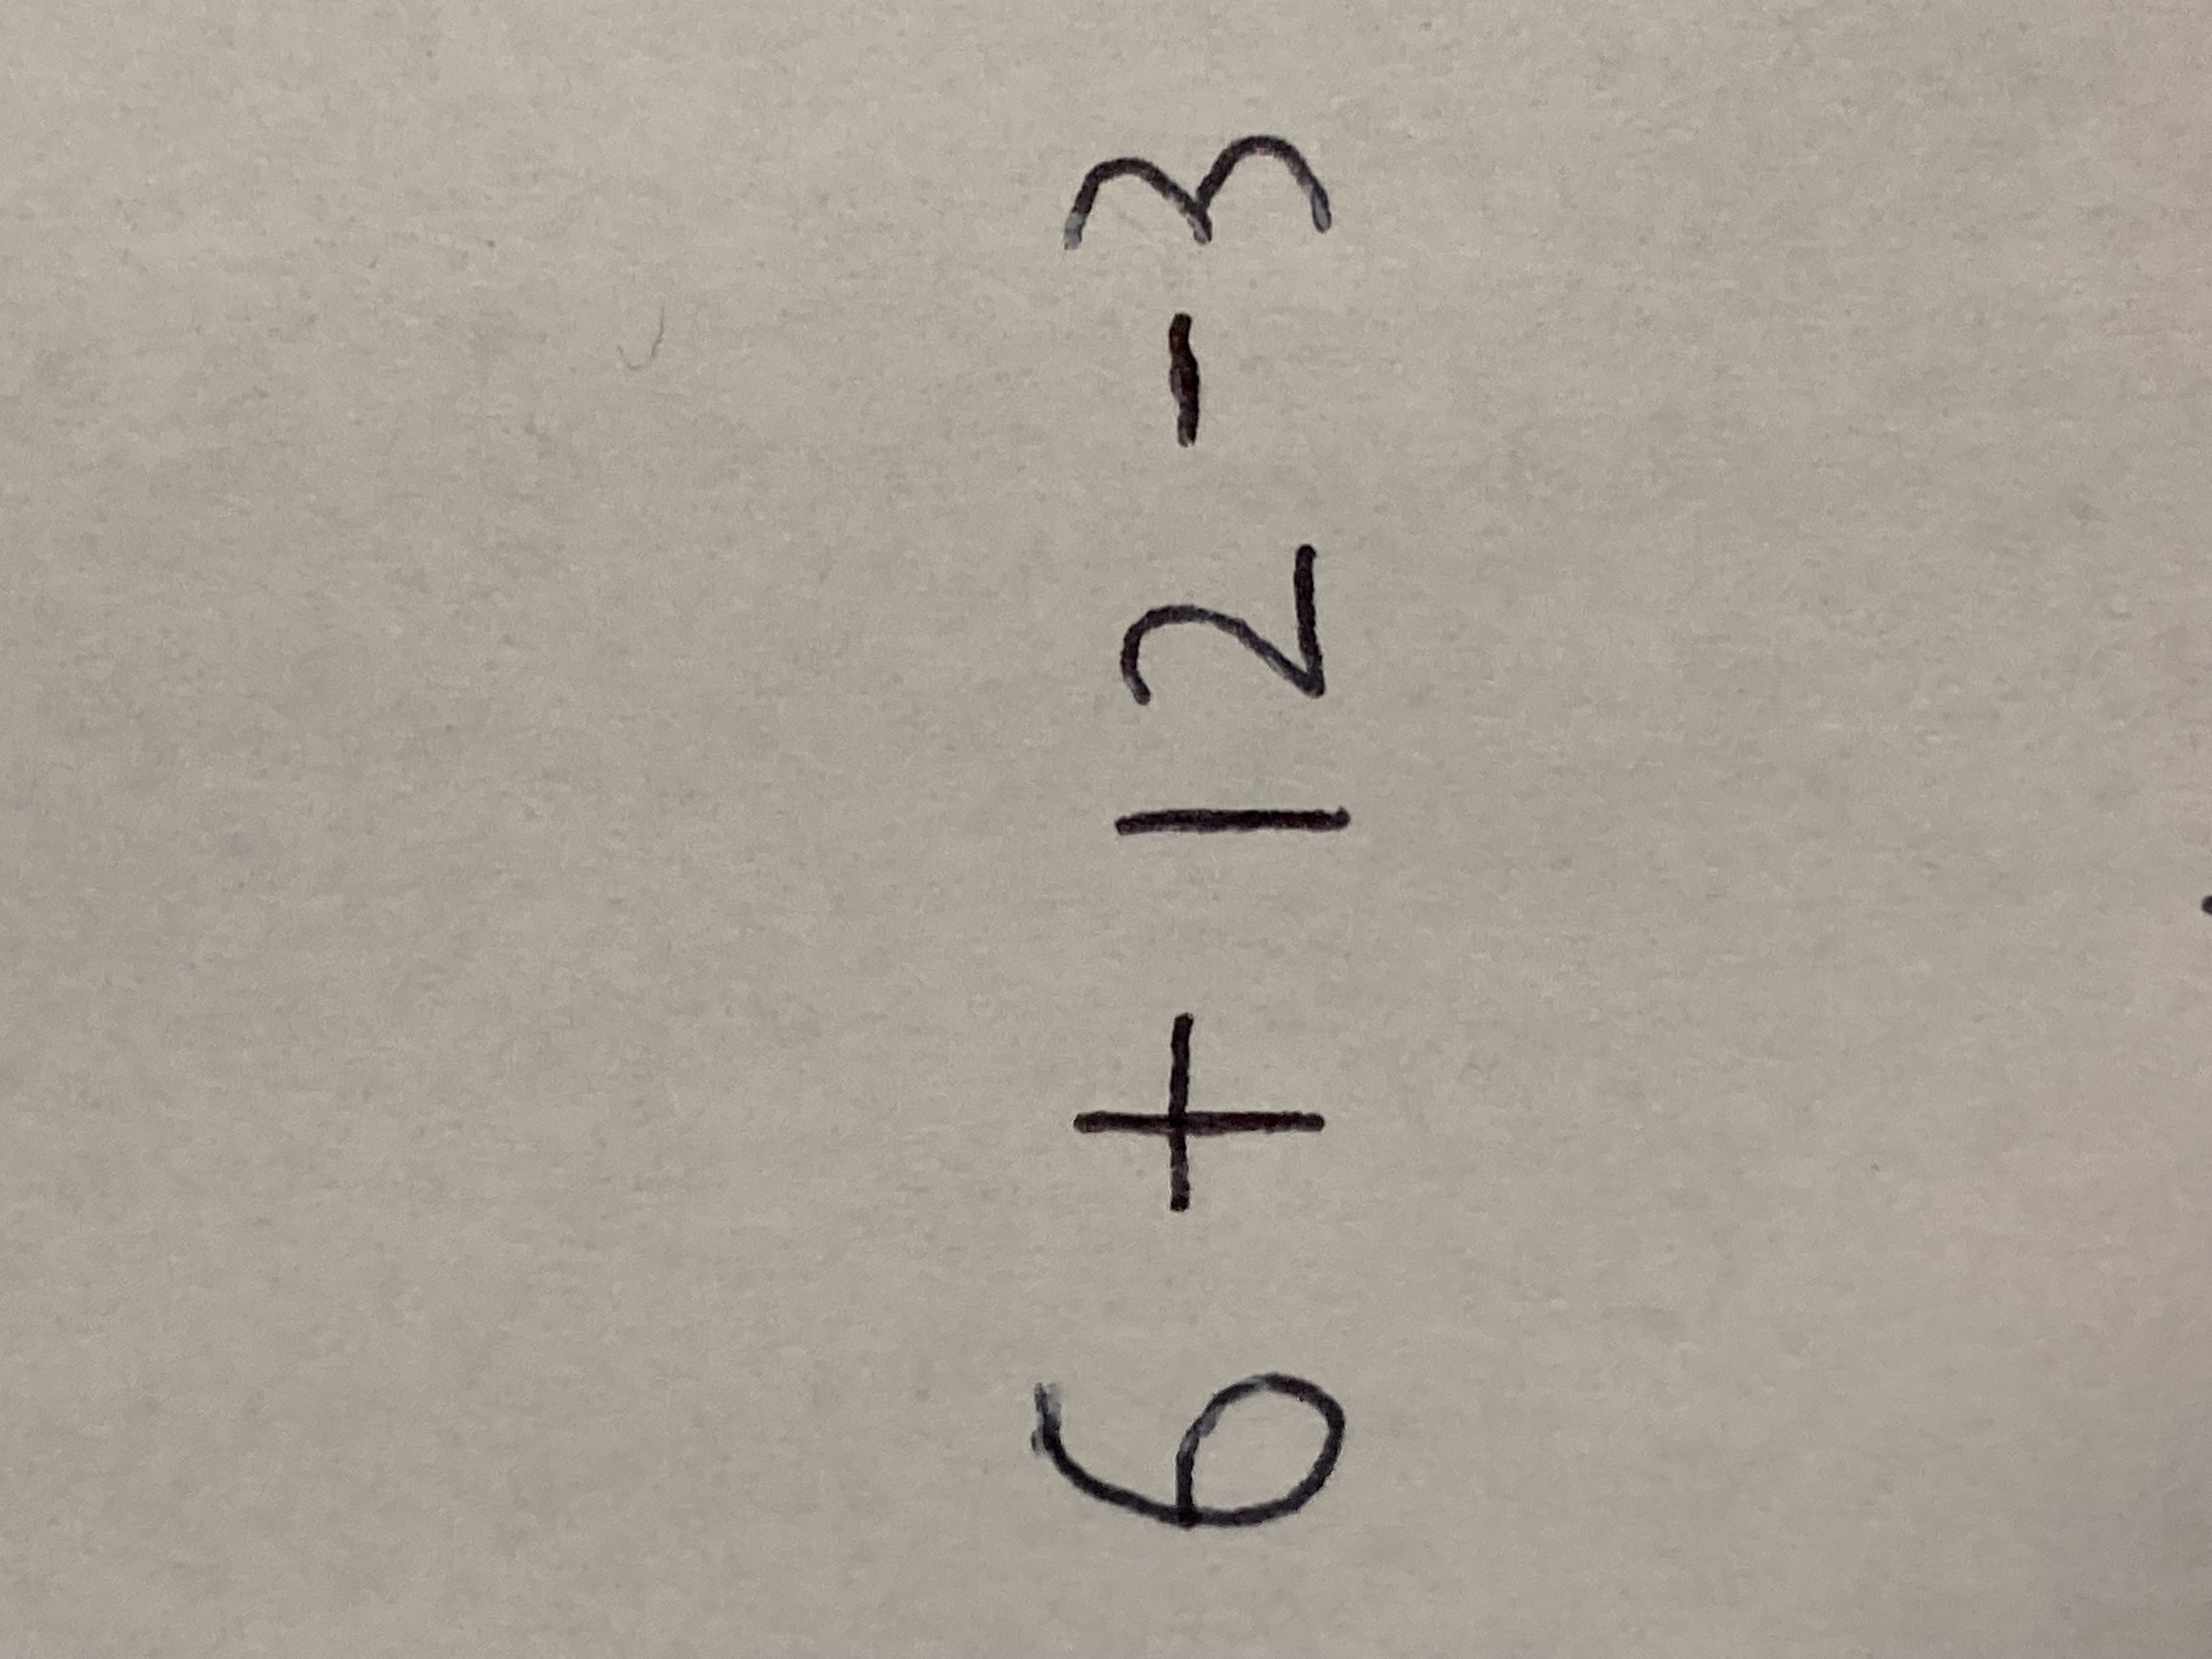 6 + 12 - 3